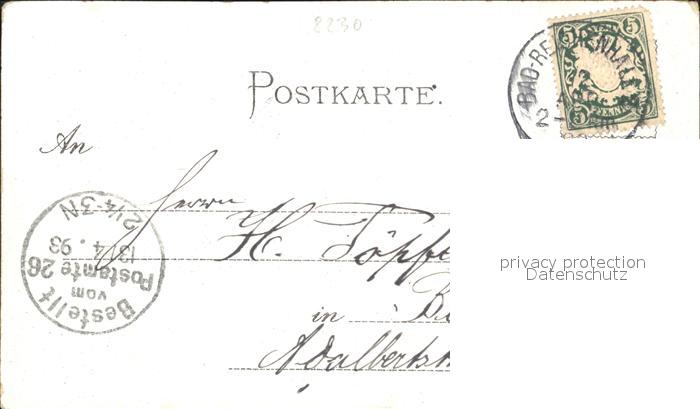 8230
BAD-REICHENHALL
5 5
5 PFENNIG 5
POSTKARTE.
An
Herrn
H. Töpfe
in B
Adalbertst
Bestellt
vom
Postamte 26
13/4. 98
2¼-3N
privacy protection
Datenschutz